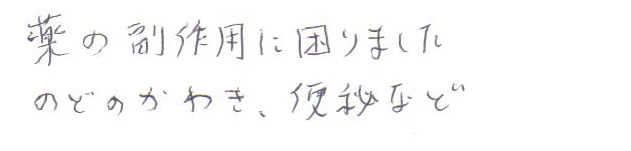 薬の副作用に困りました
のどのかわき、便秘など